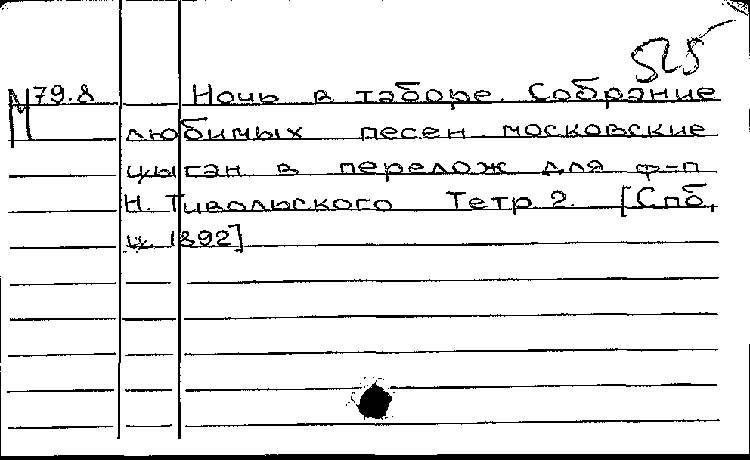 525
М 79.8 Ночь в таборе. Собрание
любимых песен московские
цыган в перелож для ф-п
Н. Тивольского Тетр 2. [Спб,
ц. 1892]